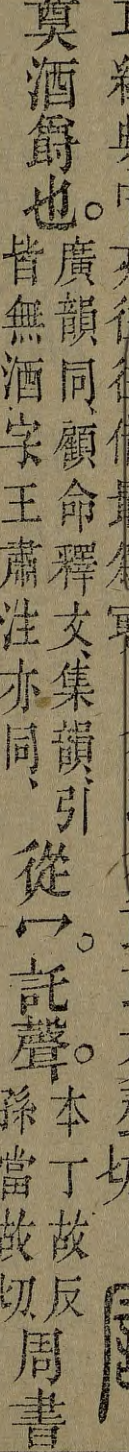 奠酒爵也。
廣韻同、顧命釋文、集韻、引
皆無酒字、王肅注亦同、
從冖。託聲。
本丁故反
孫當故切、
周書